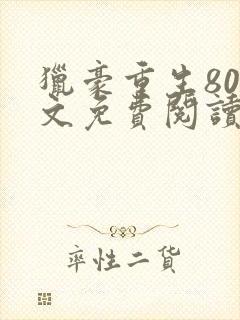 獵豪重生80
文免費閱讀
率性二貨